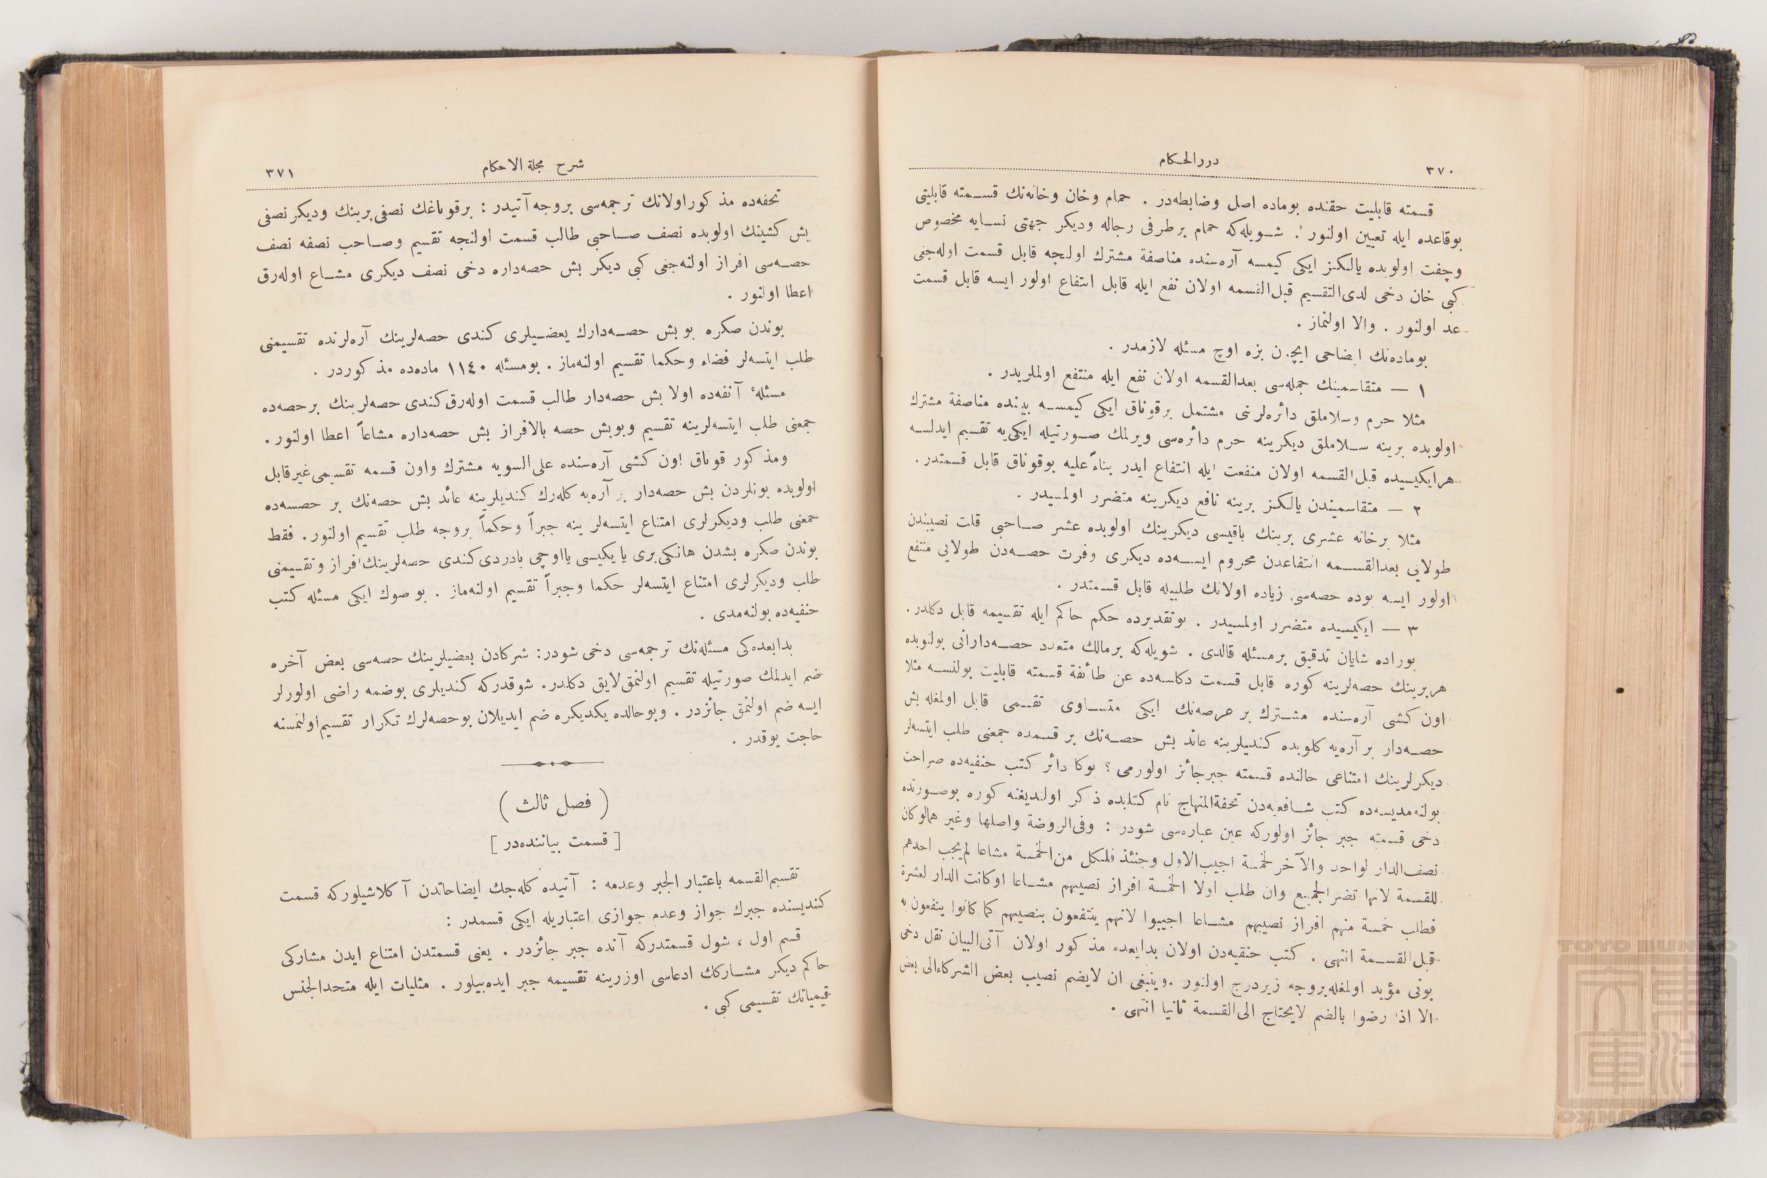 ٣٧٠
دررالحـكام
قسمته قابليت حقنده بوماده اصل وضابطه‌در . حمام وخان وخانه‌نك قســمته قابليتى
بوقاعده ايله تعيين اولنور . شـويله‌كه حمام برطرفى رجاله وديكر جهتى نسـايه مخصوص
وچفت اولوبده يالـكز ايكى كيمسه آره‌سنده مناصفة مشترك اولنجه قابل قسمت اوله‌جغى
كبى خان دخى لدى‌التقسيم قبل‌القسمه اولان نفع ايله قابل انتفاع اولور ايسه قابل قسمت
عد اولنور . والا اولنماز .
بوماده‌نك ايضاحى ايچون بزه اوچ مسئله لازمدر .
١ — متقاسمينك جمله‌سى بعدالقسمه اولان نفع ايله منتفع اولملريدر .
مثلا حرم وسلاملق دائره‌لرنى مشتمل برقوناق ايكى كيمسـه بيننده مناصفة مشترك
اولوبده برينه سـلاملق ديكرينه حرم دائره‌سى ويرلمك صـورتيله ايكى‌يه تقسيم ايدلسـه
هرايكيسيده قبل‌القسمه اولان منفعت ايله انتفاع ايدر بناءً عليه بوقوناق قابل قسمتدر .
٢ — متقاسميندن يالـكز برينه نافع ديكرينه متضرر اولمسيدر .
مثلا برخانه عشرى برينك باقيسى ديكرينك اولوبده عشر صـاحبى قلت نصيبندن
طولايى بعدالقسـمه انتفاعدن محروم ايسـه‌ده ديكرى وفرت حصـه‌دن طولايى متنفع
اولور ايسه بوده حصه‌سى زياده اولانك طلبيله قابل قسـمتدر .
٣ — ايكيسيده متضرر اولمسيدر . بوتقديرده حكم حاكم ايله تقسيمه قابل دكلدر .
بوراده شايان تدقيق برمسئله قالدى . شويله‌كه برمالك متعدد حصـه‌دارانى بولنوبده
هربرينك حصه‌لرينه كوره قابل قسمت دكلسه‌ده عن طائفة قسمته قابليت بولنسـه مثلا
اون كشى آره‌سنده مشـترك بر عرصه‌نك ايكى متسـاوى تقسـمى قابل اولمغله بش
حصـه‌دار بر آره‌يه كلوبده كنديلرينه عائد بش حصـه‌نك بر قسـمده جمعنى طلب ايتسه‌لر
ديكرلرينك امتناعى حالنده قسمته جبرجائز اولورمى ؟ بوكا دائر كتب حنفيه‌ده صراحت
بولنه‌مديسه‌ده كتب شـافعيه‌دن تحفةالمنهاج نام كتابده ذكر اولنديغنه كوره بوصـورتده
دخى قسـمته جبر جائز اولوركه عين عباره‌سى شودر : وفى‌الروضة واصلها وغير هالوكان
نصف‌الدار لواحد والآخر لخمسة اجيب‌الاول وحينئذ فلكل من‌الخمسة مشاعا لم‌يجب احدهم
للقسمة لانها تضرالجميع وان طلب اولا الخمسة افراز نصيبهم مشـاعا اوكانت الدار لعشرة
فطلب خمسة منهم افراز نصيبهم مشـاعا اجيبوا لانهم ينتفعون بنصيبهم كما كانوا ينفعون به
قبل‌القسـمة انتهى . كتب حنفيه‌دن اولان بدايعده مذكور اولان آتى‌البيان نقل دخى
بونى مؤيد اولمغله‌بروجه زيردرج اولنور . وينبغى ان لايضم نصيب بعض الشركاءالى بعض
الا اذا رضوا بالضم لايحتاج الى‌القسمة ثانيا انتهى .
شرح مجلة الاحكام
٣٧١
تحفه‌ده مذكوراولانك ترجمه‌سى بروجه‌آتيدر : برقوناغك نصفى برينك وديكر نصفى
بش كشينك اولوبده نصف صـاحبى طالب قسمت اولنجه تقسيم وصـاحب نصفه نصف
حصـه‌سى افراز اولنه‌جغى كبى ديكر بش حصه‌داره دخى نصف ديكرى مشـاع اوله‌رق
اعطا اولنور .
بوندن صكره بو بش حصـه‌دارك بعضـيلرى كندى حصه‌لرينك آره‌لرنده تقسيمنى
طلب ايتسه‌لر قضاء وحكما تقسيم اولنه‌ماز . بومسئله ١١٤٠ ماده‌ده مذكوردر .
مسئلهٔ آنفه‌ده اولا بش حصه‌دار طالب قسمت اوله‌رق كندى حصه‌لرينك برحصه‌ده
جمعنى طلب ايتسه‌لرينه تقسيم وبوبش حصه بالافراز بش حصه‌داره مشاعاً اعطا اولنور .
ومذكور قوناق اون كشى آره‌سنده على‌السويه مشترك واون قسمه تقسيمى غيرقابل
اولوبده بونلردن بش حصه‌دار بر آره‌يه كله‌رك كنديلرينه عائد بش حصه‌نك بر حصسه‌ده
جمعنى طلب وديكرلرى امتناع ايتسه‌لر ينه جبراً وحكماً بروجه طلب تقسيم اولنور . فقط
بوندن صكره بشدن هانكى‌برى يا يكيسى يااوچى يادردى‌كندى حصه‌لرينك‌افراز وتقسيمنى
طلب وديكرلرى امتناع ايتسه‌لر حكما وجبراً تقسيم اولنه‌ماز . بو صوك ايكى مسئله كتب
حنفيه‌ده بولنه‌مدى .
بدايعده‌كى مسئله‌نك ترجمه‌سى دخى شودر : شركادن بعضيلرينك حصه‌سى بعض آخره
ضم ايدلمك صورتيله تقسيم اولنمق‌لايق دكلدر . شوقدركه كنديلرى بوضمه راضى اولورلر
ايسه ضم اولنمق جائزدر . وبوحالده يكديكره ضم ايديلان بوحصه‌لرك تـكرار تقسيم‌اولنمسنه
حاجت يوقدر .
( فصل ثالث )
[ قسمت بياننده‌در ]
تقسيم‌القسمه باعتبار الجبر وعدمه : آتيده كله‌جك ايضاحاتدن آكلاشيلوركه قسمت
كنديسنده جبرك جواز وعدم جوازى اعتباريله ايكى قسمدر :
قسم اول ، شول قسمتدركه آنده جبر جائزدر . يعنى قسمتدن امتناع ايدن مشاركى
حاكم ديكر مشـاركك ادعاسى اوزرينه تقسيمه جبر ايده‌بيلور . مثليات ايله متحدالجنس
قيمياتك تقسيمى كبى .
TOYO BUNKO
東洋文庫
TOYO BUNKO